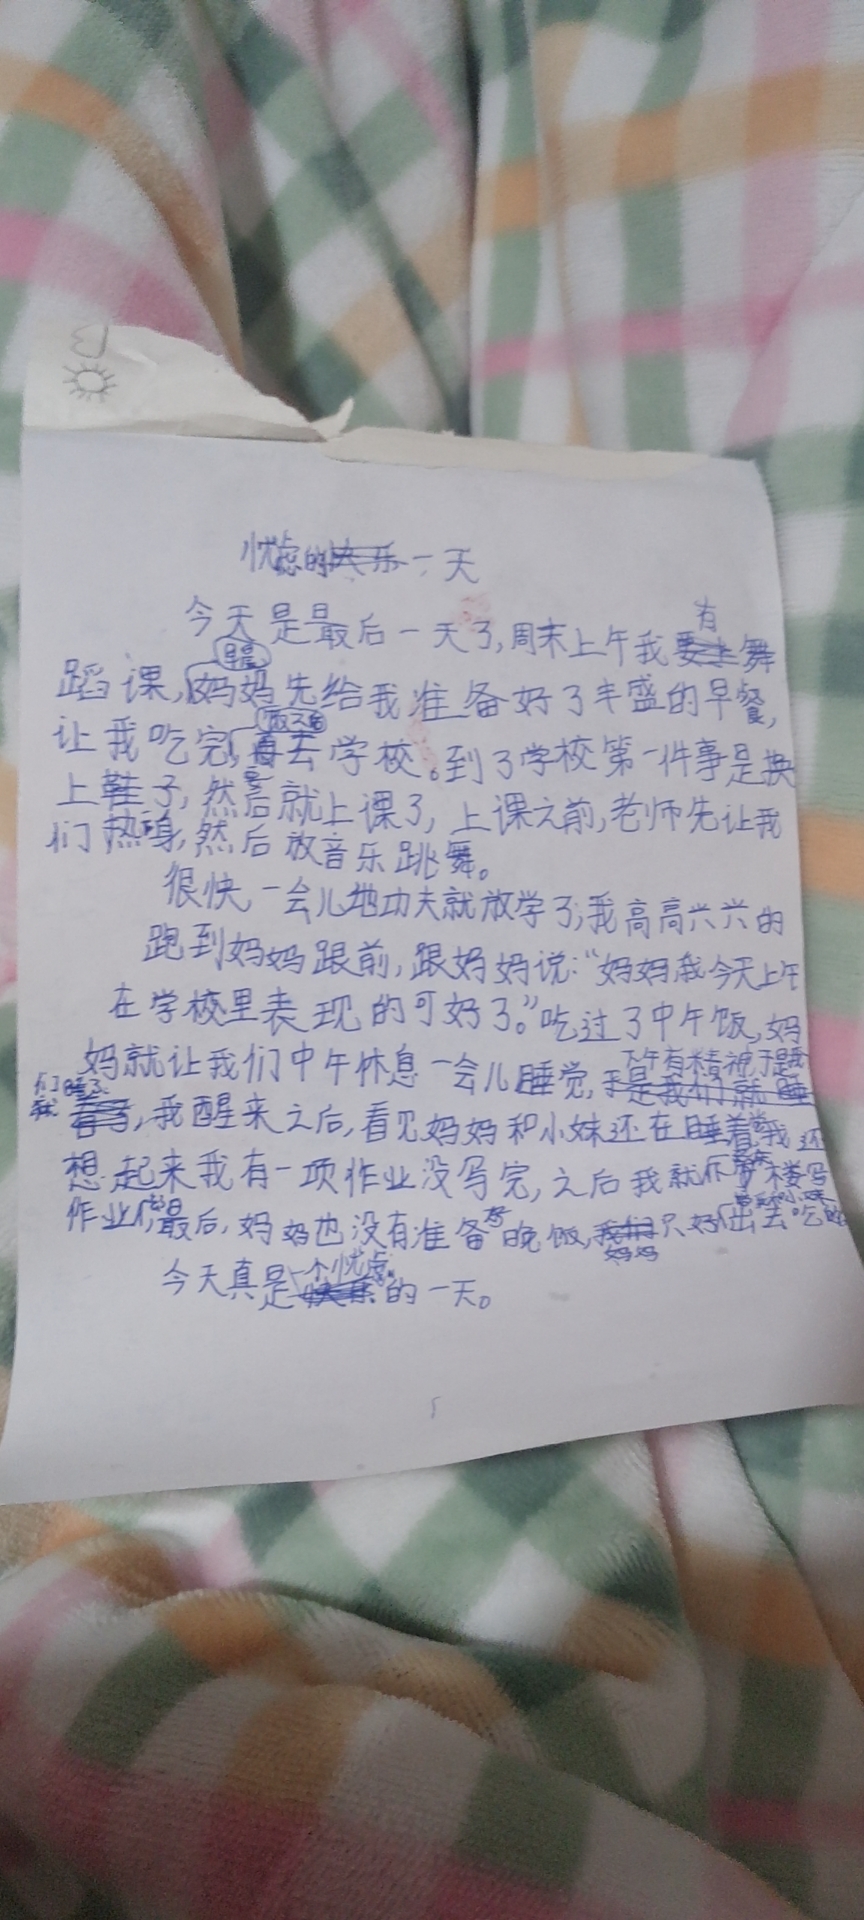 忧虑的一天
今天是最后一天了,周末上午我有舞
蹈课,早晨妈妈先给我准备好了丰盛的早餐,
让我吃完,再去学校。到了学校第一件事是换
上鞋子,然后就上课了,上课之前,老师先让我
们热身,然后放音乐跳舞。
很快,一会儿地功夫就放学了,我高高兴兴的
跑到妈妈跟前,跟妈妈说:“妈妈,我今天上午
在学校里表现的可好了。”吃过了中午饭,妈
妈就让我们中午休息一会儿睡觉,下午有精神,于是我
们睡了,我醒来之后,看见妈妈和小妹还在睡着觉,我还
想起来我有一项作业没写完,之后我就下楼写
作业了,最后,妈妈也没有准备好晚饭,妈妈只好出去吃
今天真是一个忧虑的一天。